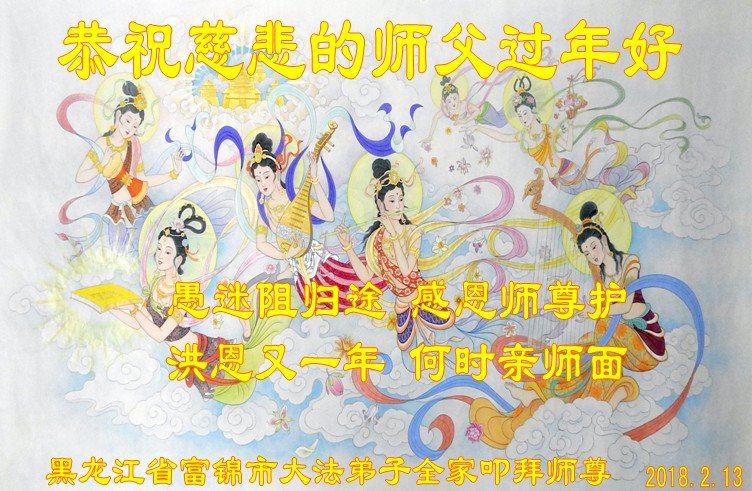 恭祝慈悲的师父过年好
愚迷阻归途 感恩师尊护
洪恩又一年 何时亲师面
黑龙江省富锦市大法弟子全家叩拜师尊 2018.2.13